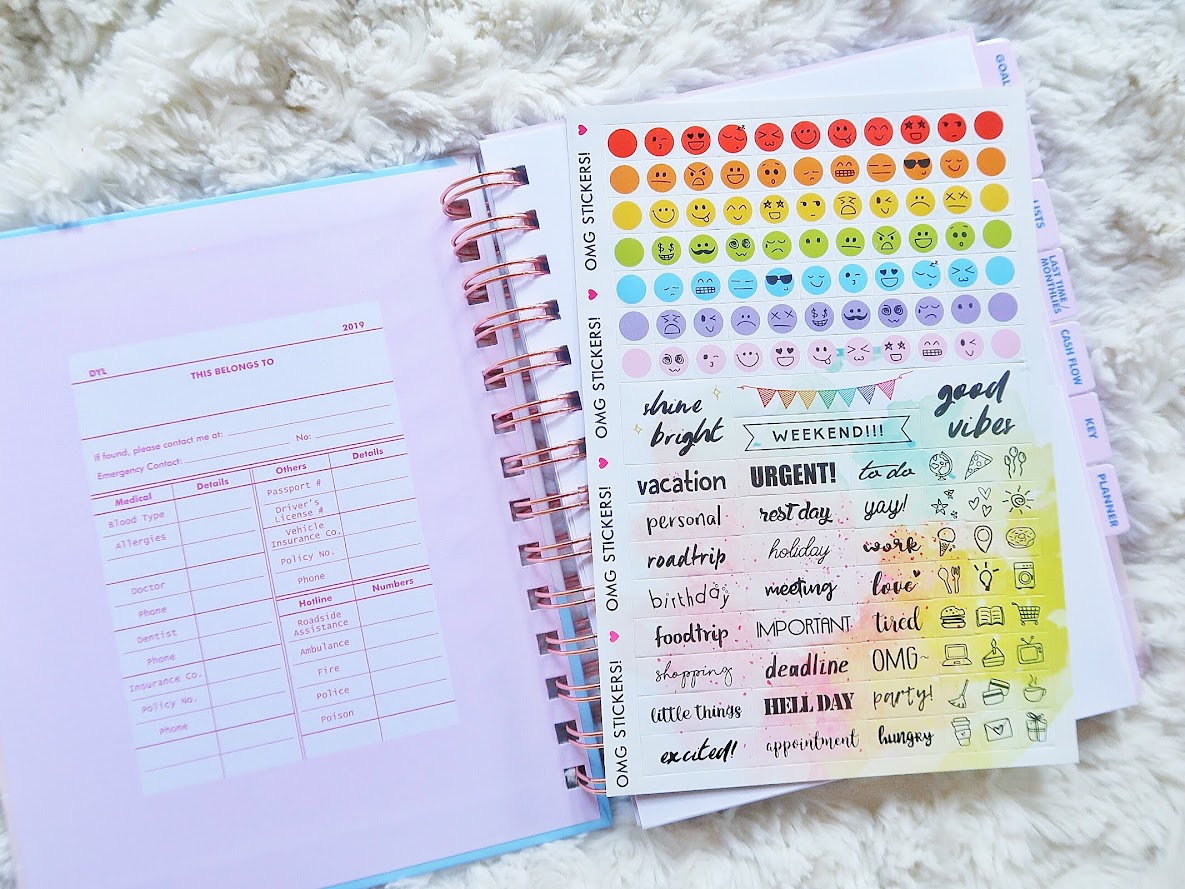 DYL 2019
THIS BELONGS TO
If found, please contact me at:
Emergency Contact: No:
Medical Details Others Details
Blood Type Passport #
Allergies Driver's License #
Vehicle Insurance Co.
Doctor Policy No.
Phone Phone
Dentist Hotline Numbers
Phone Roadside Assistance
Insurance Co. Ambulance
Policy No. Fire
Phone Police
Poison
OMG STICKERS!
OMG STICKERS!
OMG STICKERS!
OMG STICKERS!
shine bright
WEEKEND!!!
good vibes
vacation URGENT! to do
personal rest day yay!
roadtrip holiday work
birthday meeting love
foodtrip IMPORTANT tired
shopping deadline OMG~
little things HELL DAY party!
excited! appointment hungry
LISTS
LAST TIME /
MONTHLIES
CASH FLOW
KEY
PLANNER